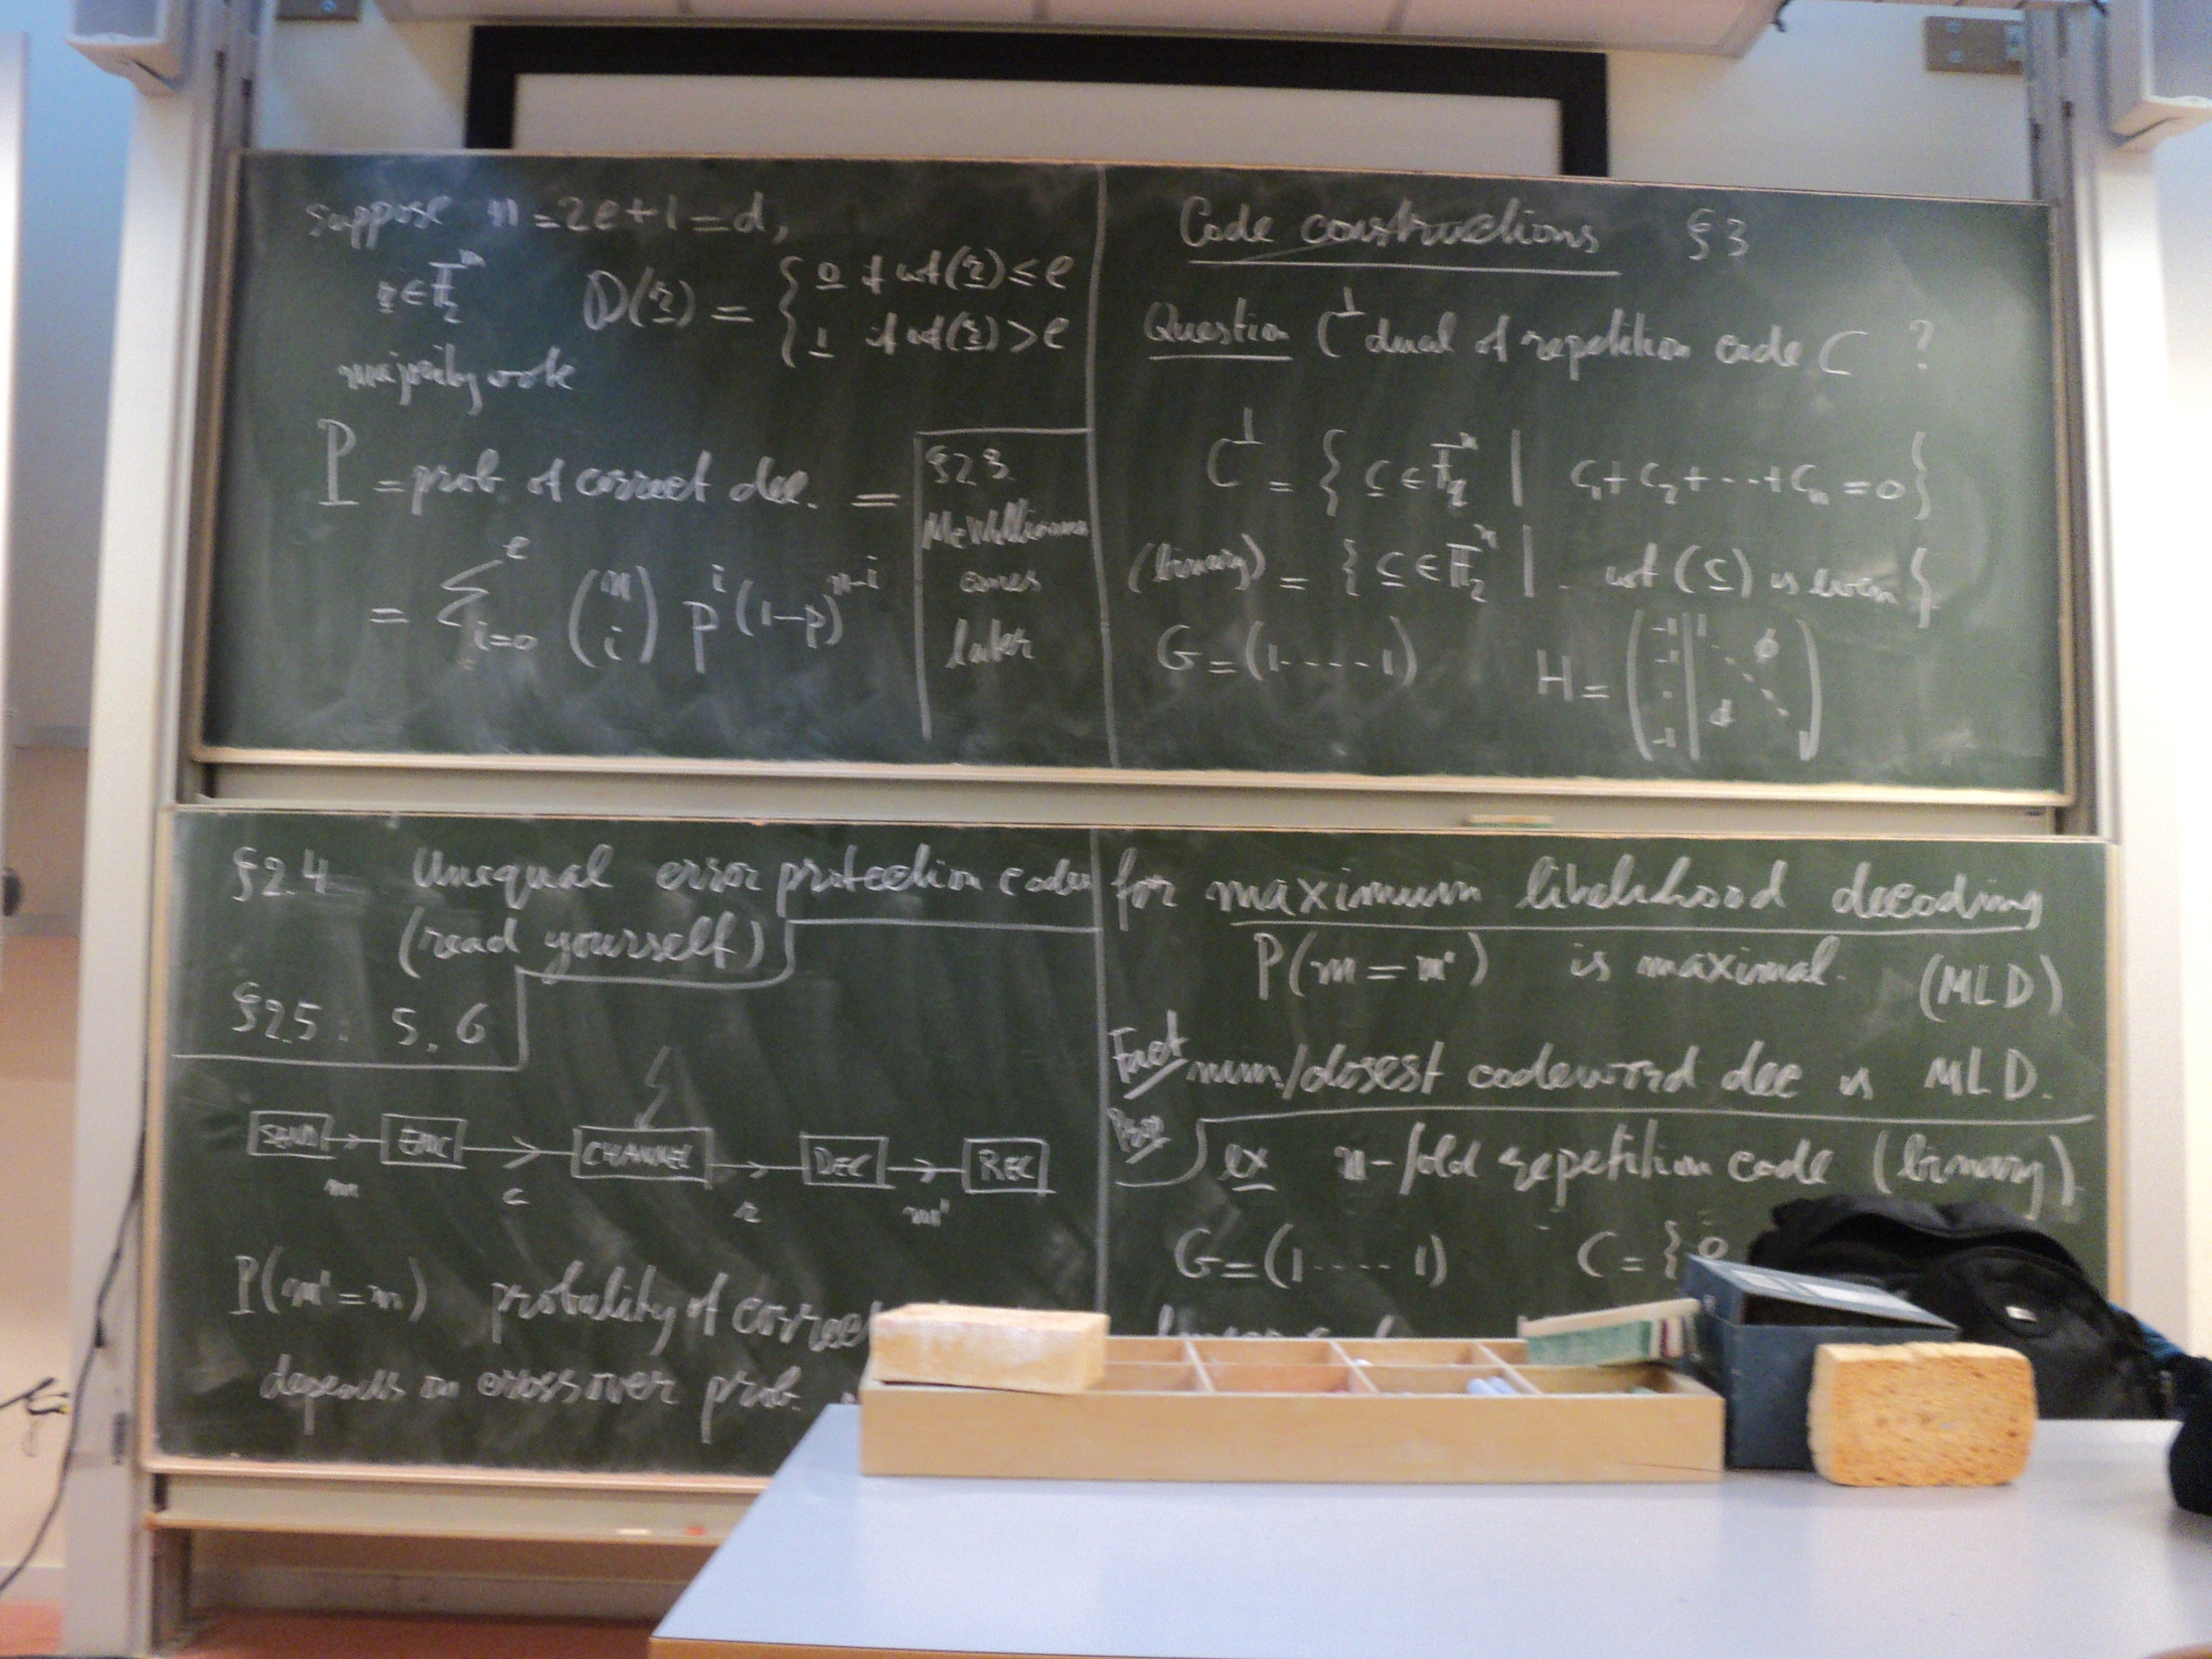 suppose n = 2e+1 = d,
r ∈ F₂ⁿ D(r) = { 0 if wt(r) ≤ e
1 if wt(r) > e
majority vote
P = prob. of correct dec. =
= Σ_{i=0}^{e} (n i) p^i (1-p)^{n-i}
§2.3.
MacWilliams
comes
later
Code constructions §3
Question C^⊥ dual of repetition code C ?
C^⊥ = { c ∈ F_q^n | c₁ + c₂ + ··· + c_n = 0 }
(binary) = { c ∈ F₂^n | wt (c) is even }
G = (1 ···· 1) H = ( -1 | 1 0
-1
·
-1 | 0 1 )
§2.4 Unequal error protection codes
(read yourself)
§2.5: 5, 6
SEND ENC CHANNEL DEC REC
m c r m'
P(m' = m) probality of correct
depends on crossover prob.
for maximum likelihood decoding
P(m = m') is maximal. (MLD)
Fact min/closest codeword dec is MLD.
Prop
ex n-fold repetition code (binary)
G = (1 ···· 1) C = { 0